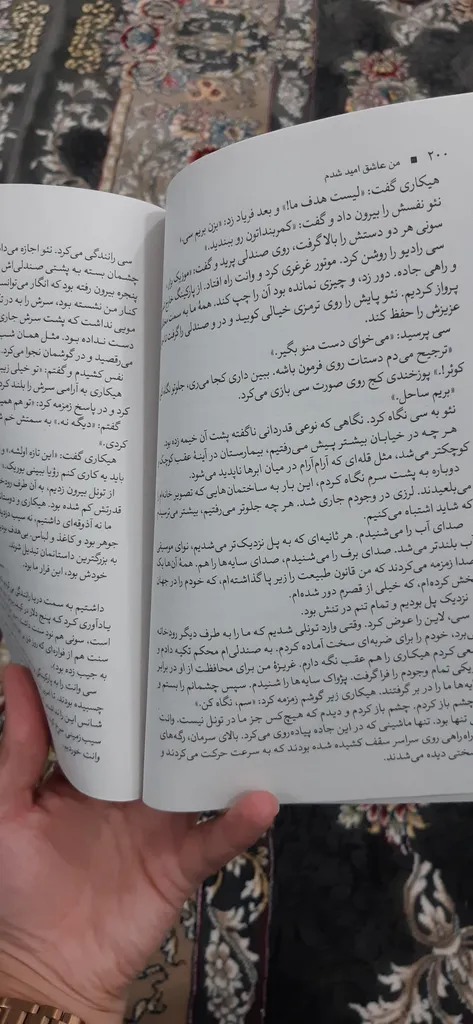 ۲۰۰ ■ من عاشق امید شدم
هیکاری گفت: «لیست هدف ما!» و بعد فریاد زد: «بزن بریم سی.»
نئو نفسش را بیرون داد و گفت: «کمربنداتون رو ببندید.»
سونی هر دو دستش را بالا گرفت، روی صندلی پرید و گفت: «موزیک
سی رادیو را روشن کرد. موتور غرغری کرد و وانت راه افتاد. از پارکینگ
و راهی جاده. دور زد، و چیزی نمانده بود آن را چپ کند. همهٔ ما به سمت
پرواز کردیم. نئو پایش را روی ترمزی خیالی کوبید و در و صندلی را گرفت تا
عزیزش را حفظ کند.
سی پرسید: «می‌خوای دست منو بگیر.»
«ترجیح می‌دم دستات روی فرمون باشه. ببین داری کجا می‌ری، جلوتو نگاه
کوثر!» پوزخندی کج روی صورت سی بازی می‌کرد.
«بریم ساحل.»
نئو به سی نگاه کرد. نگاهی که نوعی قدردانی ناگفته پشت آن خیمه زده بود.
هر چه در خیابان بیشتر پیش می‌رفتیم، بیمارستان در آینهٔ عقب کوچک
کوچکتر می‌شد، مثل قله‌ای که آرام‌آرام در میان ابرها ناپدید می‌شود.
دوباره به پشت سرم نگاه کردم، این بار به ساختمان‌هایی که تصویر خانه‌ام
می‌بلعیدند. لرزی در وجودم جاری شد. هر چه جلوتر می‌رفتیم، بیشتر
که شاید اشتباه می‌کنیم.
صدای آب را می‌شنیدم. هر ثانیه‌ای که به پل نزدیک‌تر می‌شدیم، نوای موسیقی
آب بلندتر می‌شد. صدای برف را می‌شنیدم، صدای سایه‌ها را هم. همهٔ آن‌ها یک
صدا زمزمه می‌کردند که من قانون طبیعت را زیر پا گذاشته‌ام، که خودم را در جهان
پخش کرده‌ام، که خیلی از قصرم دور شده‌ام.
نزدیک پل بودیم و تمام تنم در تنش بود.
سی، لاین را عوض کرد. وقتی وارد تونلی شدیم که ما را به طرف دیگر رودخانه
می‌برد، خودم را برای ضربه‌ای سخت آماده کردم. به صندلی‌ام محکم تکیه دادم و
سعی کردم هیکاری را هم عقب نگه دارم. غریزهٔ من برای محافظت از او در برابر
تاریکی تمام وجودم را فرا گرفت. پژواک سایه‌ها را شنیدم. سپس چشمانم را بستم و
سایه‌ها ما را در بر گرفتند. هیکاری زیر گوشم زمزمه کرد: «سم، نگاه کن.»
چشم باز کردم. چشم باز کردم و دیدم که هیچ‌کس جز ما در تونل نیست. وانت
تنها بود. تنها ماشینی که در این جاده پیاده‌روی می‌کرد. بالای سرمان، رگه‌های
راه‌راهی روی سراسر سقف کشیده شده بودند که به سرعت حرکت می‌کردند و
سختی دیده می‌شدند.
سی رانندگی می‌کرد. نئو اجازه می‌داد
چشمان بسته به پشتی صندلی‌اش
پنجره بیرون رفته بود که انگار می‌توانست
کنار من نشسته بود، سرش را به در
مویی نداشت که پشت سرش جاری
دست نداده بود. مثل همان شب
می‌رقصید و در گوشمان نجوا می‌کرد.
نفس کشیدم و گفتم: «تو خیلی زیبا
هیکاری به آرامی سرش را بلند کرد
کرد و در پاسخ زمزمه کرد: «تو هم
گفتم: «دیگه نه.» به سمتش خم
کردی.»
هیکاری گفت: «این تازه اولشه.»
باید یه کاری کنم رؤیا ببینی یوریک.»
از تونل بیرون زدیم، به آن طرف رودخانه
قدرتش کم شده بود. هیکاری و
ما نه آذوقه‌ای داشتیم، نه سیب
جوهر بود و کاغذ و لباس. بی‌هدف بودیم
به بزرگترین داستانمان تبدیل
خودش بود، این فرار ما بود.
داشتیم به سمت دریا رانندگی
یادآوری کرد که پنج دلار
است، سونی هم نود سنت
سنت هم از فواره‌ای که
به جیب زده بود!»
سی وانت را به پارکینگ
چسبیده بودند،
شانس این را
وانت خوردیم.